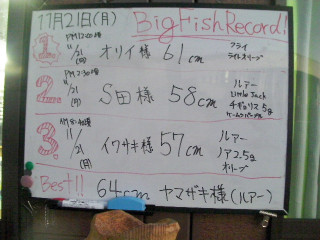 11月21日(月) Big Fish Record!
1. PM 12:00頃 11/21(月) オリイ様 61cm フライ
2. PM 2:30頃 11/21(月) S田様 58cm ルアー Little Jack
チギリス 5g
3. 11/21(月) イワサキ様 57cm ルアー
ノア 2.5g
オリーブ
Best!! 64cm ヤマザキ様(ルアー)